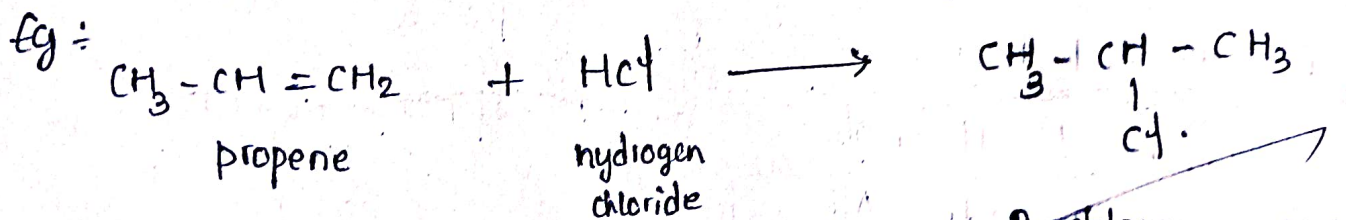 Eg ÷
CH3 - CH = CH2 + HCl → CH3 - CH - CH3
|
Cl.
propene hydrogen
chloride